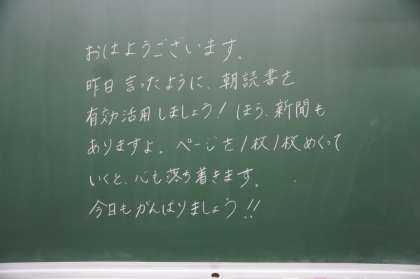 おはようございます。
昨日言ったように、朝読書を
有効活用しましょう！ほら、新聞も
ありますよ。ページを1枚1枚めくって
いくと、心も落ち着きます。
今日もがんばりましょう!!